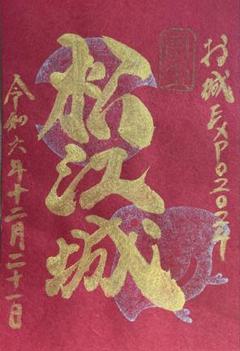 お城EXPO2024
松江城
令和六年十二月二十一日